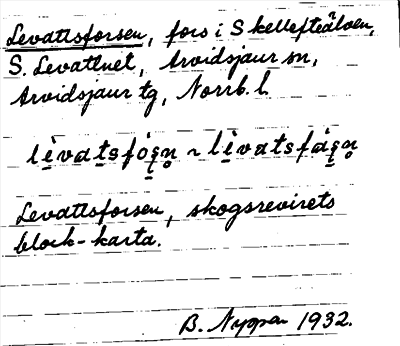 Levattsforsen, fors i Skellefteälven,
S. Levattnet, Arvidsjaur sn,
Arvidsjaur tg, Norrb. l.
lèvatsfó̜ṣn̥ ~ lèvatsfáṣn̥
Levattsforsen, skogsrevirets
block-karta.
B. Nyman 1932.